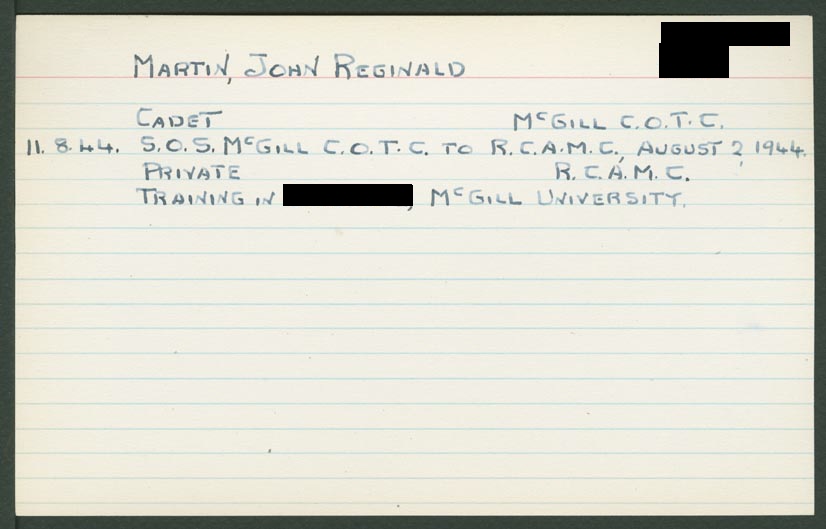 MARTIN, JOHN REGINALD
CADET McGILL C.O.T.C.
11.8.44. S.O.S. McGILL C.O.T.C. TO R.C.A.M.C., AUGUST 2, 1944.
PRIVATE R.C.A.M.C.
TRAINING IN , McGILL UNIVERSITY.